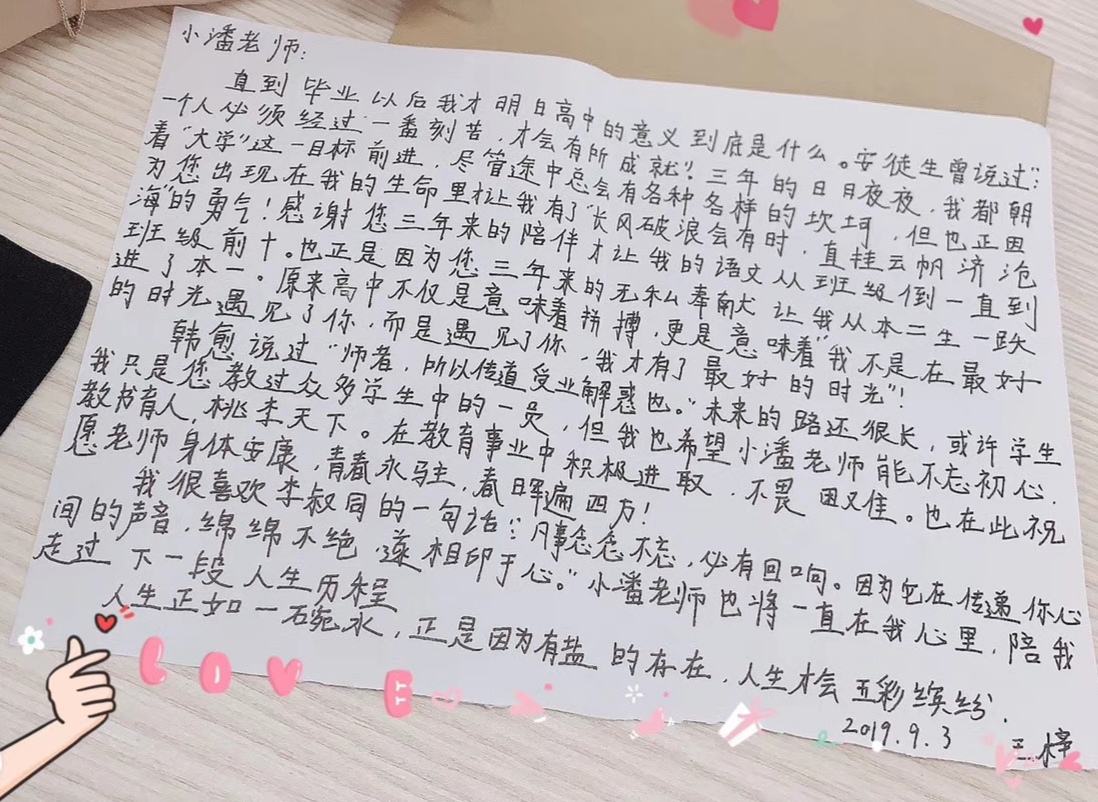 小潘老师：
直到毕业以后我才明日高中的意义到底是什么。安徒生曾说过"：
一个人必须经过一番刻苦，才会有所成就"！三年的日日夜夜，我都朝
着"大学"这一目标前进，尽管途中总会有各种各样的坎坷，但也正因
为您出现在我的生命里才让我有了"长风破浪会有时，直挂云帆济沧
海"的勇气！感谢您三年来的陪伴才让我的语文从班级倒一直到
班级前十。也正是因为您三年来的无私奉献让我从本二生一跃
进了本一。原来高中不仅是意味着拼搏，更是意味着"我不是在最好
的时光遇见了你，而是遇见了你，我才有了最好的时光"！
韩愈说过"师者，所以传道受业解惑也。"未来的路还很长，或许学生
我只是您教过众多学生中的一员，但我也希望小潘老师能不忘初心，
教书育人，桃李天下。在教育事业中积极进取，不畏困难。也在此祝
愿老师身体安康，青春永驻，春晖遍四方！
我很喜欢李叔同的一句话："凡事念念不忘，必有回响。因为它在传递你心
间的声音，绵绵不绝，遂相印于心。"小潘老师也将一直在我心里，陪我
走过下一段人生历程
人生正如一碗水，正是因为有盐的存在，人生才会五彩缤纷．
2019.9.3 王梓
LOVE